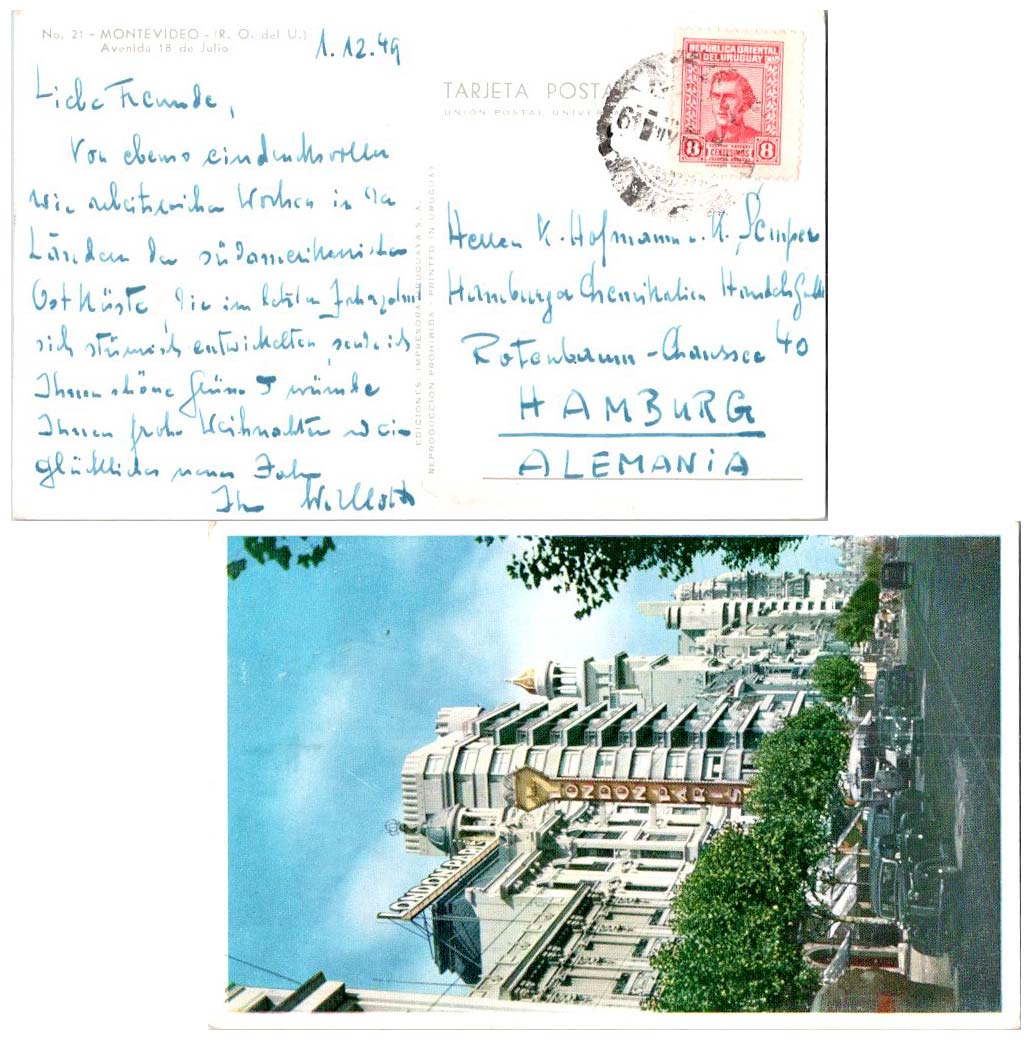 No. 21 - MONTEVIDEO - (R. O. del U.)
Avenida 18 de Julio
1.12.49
Liebe Freunde,
Von ebenso eindrucksvollen
wie arbeitsreichen Wochen in den
Ländern der südamerikanischen
Ostküste, die im letzten Jahrzehnt
sich stürmisch entwickelten, sende ich
Ihnen schöne Grüsse & wünsche
Ihnen frohe Weihnachten u. ein
glückliches neues Jahr
Ihr
TARJETA POSTA
UNION POSTAL UNIVER
EDICIONES: IMPRESORA URUGUAYA S. A.
REPRODUCCION PROHIBIDA - PRINTED IN URUGUAY
REPÚBLICA ORIENTAL
DEL URUGUAY
8 CENTESIMOS 8
Herren K. Hofmann u. K. Semper
Hamburger Chemikalien Handelsges
Rotenbaum-Chaussee 40
HAMBURG
ALEMANIA
LONDON PARIS
LONDON PARIS